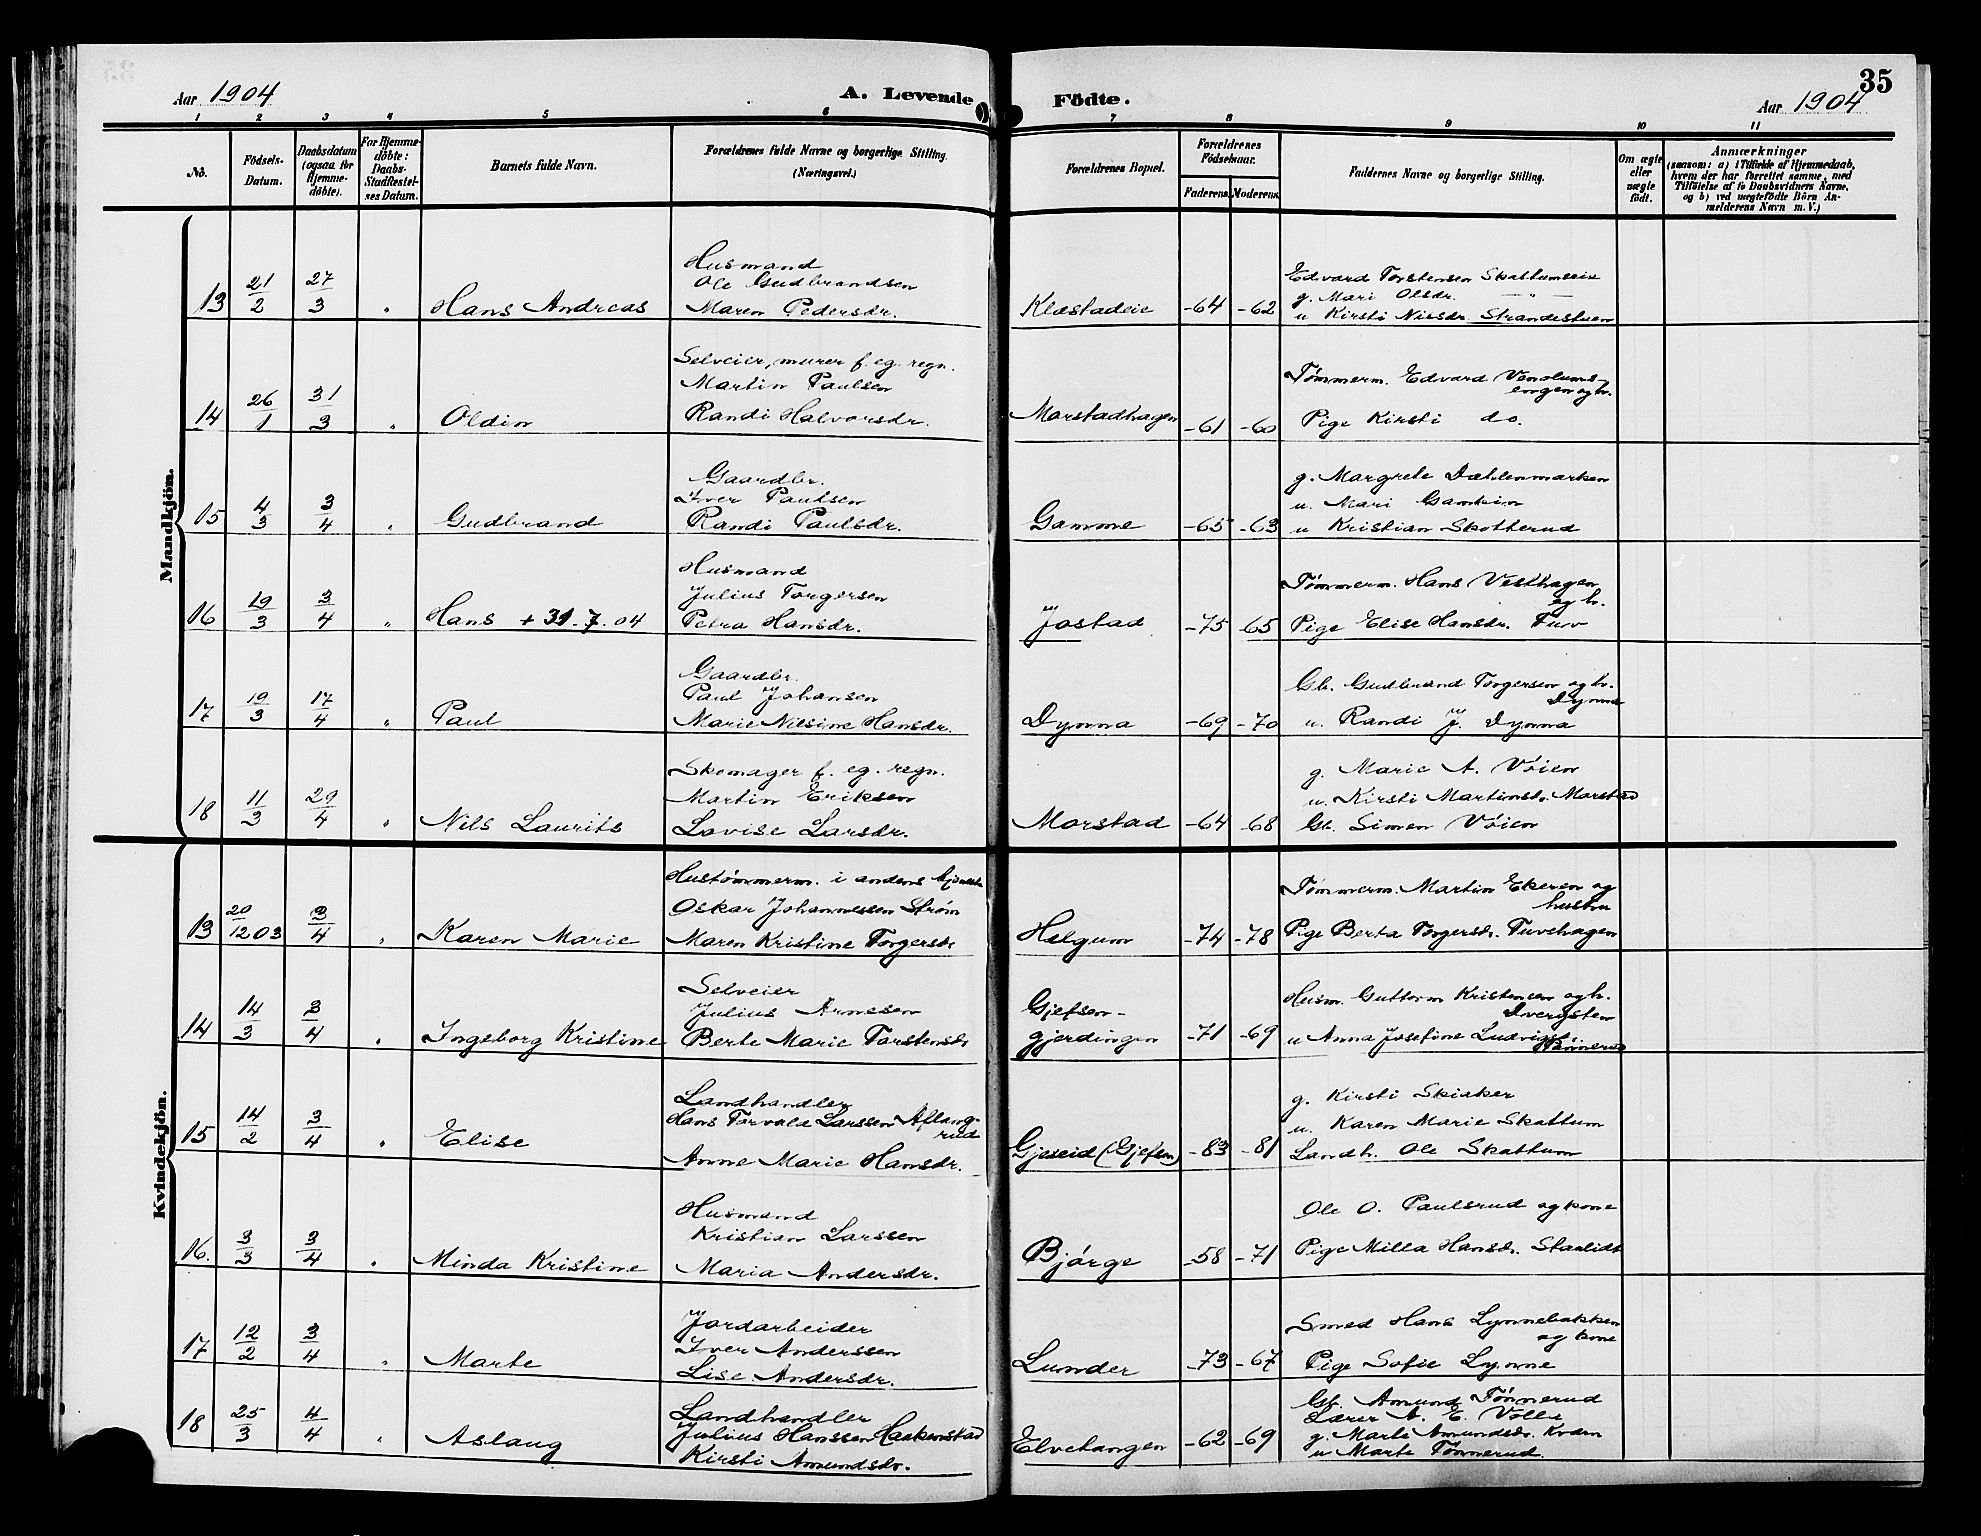 35
Aar 1904
A. Levende Födte.
Aar 1904
1 2 3 4 5 6 7 8 9 10 11
No.
Födsels-
Datum.
Daabsdatum
(ogsaa for
Hjemme-
döbte).
For Hjemme-
döbte:
Daabs-
Stadfæstel-
ses Datum.
Barnets fulde Navn.
Forældrenes fulde Navne og borgerlige Stilling.
(Næringsvei.)
Forældrenes Bopæl.
Forældrenes
Födselsaar.
Faderens. Moderens.
Faddernes Navne og borgerlige Stilling.
Om ægte
eller
uægte
födt.
Anmærkninger
(saasom: a) i Tilfælde af Hjemmedaab,
hvem der har forrettet samme, med
Tilföielse af to Daabsvidners Navne,
og b) ved uægtefödte Börn An-
melderens Navn m. V.)
Mandkjön.
13 21/2 27/3 " Hans Andreas
Husmand
Ole Gudbrandsen
Maren Pedersdr.
Klæstadeie -64 -62
Edvard Torstensen Skattumseie
g. Mari Olsdr. — " —
u Kirsti Nilsdr. Strandestuen
14 26/1 31/3 " Oldin
Selveier, murer f. eg. regn.
Martin Paulsen
Randi Halvorsdr.
Morstadhagen -61 -60
Tømmerm. Edvard Venolums-
engen og h.
Pige Kirsti do.
15 4/3 3/4 " Gudbrand
Gaardbr.
Iver Paulsen
Randi Paulsdr.
Gamme -65 -63
g. Margrete Dæhlenmarken
u. Mari Gamkin
u Kristian Skotterud
16 19/3 3/4 " Hans + 31.7.04
Husmand
Julius Torgersen
Petra Hansdr.
Jostad -75 -65
Tømmerm. Hans Vesthagen
og h.
Pige Elise Hansdr. Tuv
17 19/3 17/4 " Paul
Gaardbr.
Paul Johansen
Marie Nilsine Hansdr.
Dynna -69 -70
Gb. Gudbrand Torgersen og h.
Dynna
u. Randi J. Dynna
18 11/3 29/4 " Nils Laurits
Skomager f. eg. regn.
Martin Eriksen
Lovise Larsdr.
Morstad -64 -68
g. Marie A. Vøien
u. Kirsti Martinsdr. Morstad
Gb. Simen Vøien
Kvindekjön.
13 20/12 03 3/4 " Karen Marie
Hustømmerm. i andens tjeneste
Oskar Johannessen Strøm
Maren Kristine Torgersdr
Helgum -74 -78
Tømmerm. Martin Ekeren og
hustru
Pige Berta Torgersdr. Tuvehagen
14 14/3 3/4 " Ingeborg Kristine
Selveier
Julius Arnesen
Berte Marie Torstensdr
Gjefsen-
gjerdingen -71 -69
Husm. Guttorm Kristensen og h.
Dvergsten
u Anna Josefine Ludvigsdr.
Tønnerud
15 14/2 3/4 " Elise
Landhandler
Hans Torvald Larssen Aslang-
rud
Anne Marie Hansdr.
Gjeseid (Gjefsen) -83 -81
g. Kirsti Skiaker
u. Karen Marie Skattum
Landh. Ole Skattum
16. 3/3 3/4 " Minda Kristine
Husmand
Kristian Larssen
Maria Andersdr.
Bjørge -58 -71
Ole O. Paulsrud og kone
Pige Milla Hansdr. Staalidt
17 12/2 3/4 " Marte
Jordarbeider
Iver Anderssen
Lise Andersdr.
Lunder -73 -67
Smed Hans Lynnebakken
og kone
Pige Sofie Lynne
18 25/3 4/4 " Aslaug
Landhandler
Julius Hanssen Haakenstad
Kirsti Amundsdr.
Elvetangen -62 -69
Gb. Amund Tønnerud
Lærer A. E. Volla
g. Marte Amundsdr. Kværn
u Marte Tønnerud.